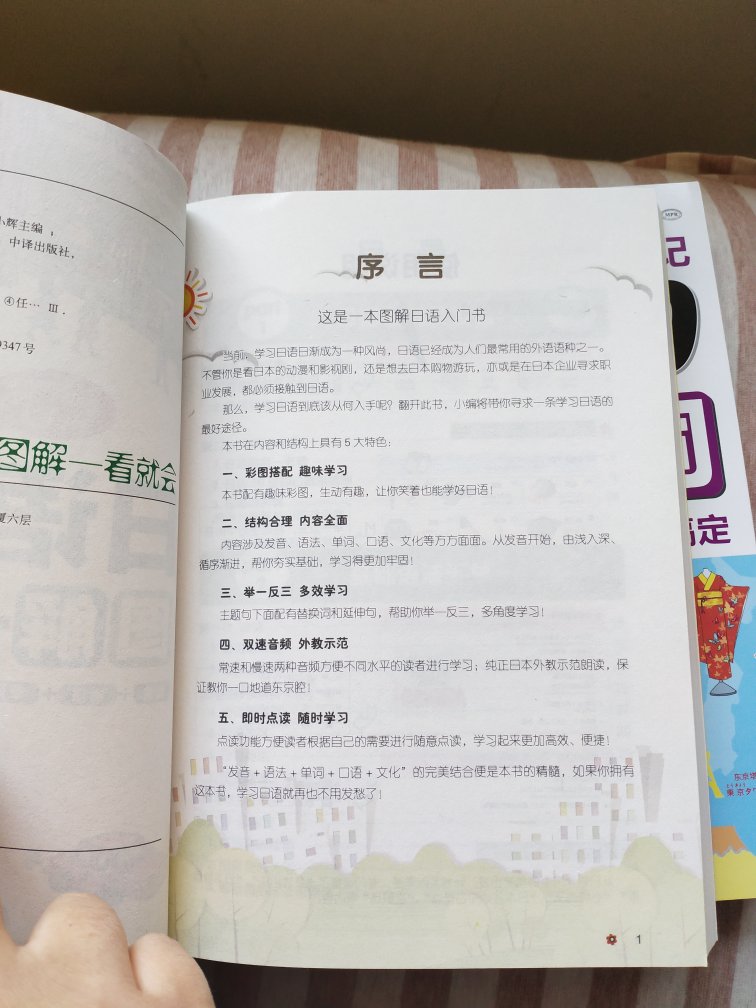 小辉主编；
中译出版社，
④任… Ⅲ.
9347号
图解一看就会
夏六层
序 言
这是一本图解日语入门书
当前，学习日语日渐成为一种风尚，日语已经成为人们最常用的外语语种之一。
不管你是看日本的动漫和影视剧，还是想去日本购物游玩，亦或是在日本企业寻求职
业发展，都必须接触到日语。
那么，学习日语到底该从何入手呢？翻开此书，小编将带你寻求一条学习日语的
最好途径。
本书在内容和结构上具有 5 大特色：
一、彩图搭配 趣味学习
本书配有趣味彩图，生动有趣，让你笑着也能学好日语！
二、结构合理 内容全面
内容涉及发音、语法、单词、口语、文化等方方面面。从发音开始，由浅入深、
循序渐进，帮你夯实基础，学习得更加牢固！
三、举一反三 多效学习
主题句下面配有替换词和延伸句，帮助你举一反三，多角度学习！
四、双速音频 外教示范
常速和慢速两种音频方便不同水平的读者进行学习；纯正日本外教示范朗读，保
证教你一口地道东京腔！
五、即时点读 随时学习
点读功能方便读者根据自己的需要进行随意点读，学习起来更加高效、便捷！
“发音 + 语法 + 单词 + 口语 + 文化”的完美结合便是本书的精髓，如果你拥有
这本书，学习日语就再也不用发愁了！
1
MPR
记
词
搞定
东京塔
とうきょう
東京タワ